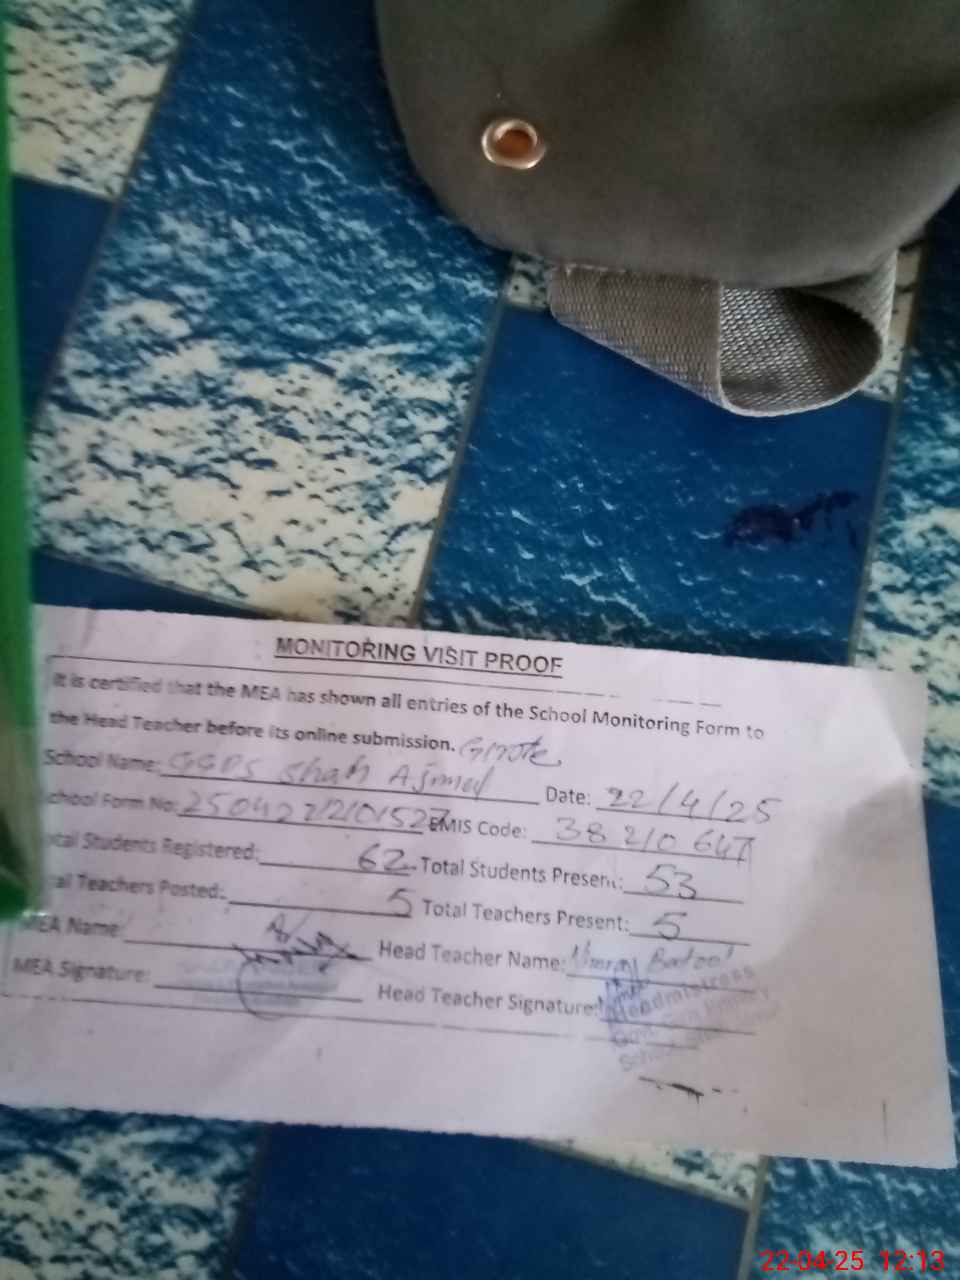 MONITORING VISIT PROOF
It is certified that the MEA has shown all entries of the School Monitoring Form to
the Head Teacher before its online submission.
School Name: GGPS Shah Ajmel Date: 22/4/25
School Form No: EMIS Code: 38210647
Total Students Registered: 62 Total Students Present: 53
Total Teachers Posted: 5 Total Teachers Present: 5
MEA Name: Head Teacher Name: Batool
MEA Signature: Head Teacher Signature:
Headmistress
Govt. Girls Primary
School
22-04-25 12:13